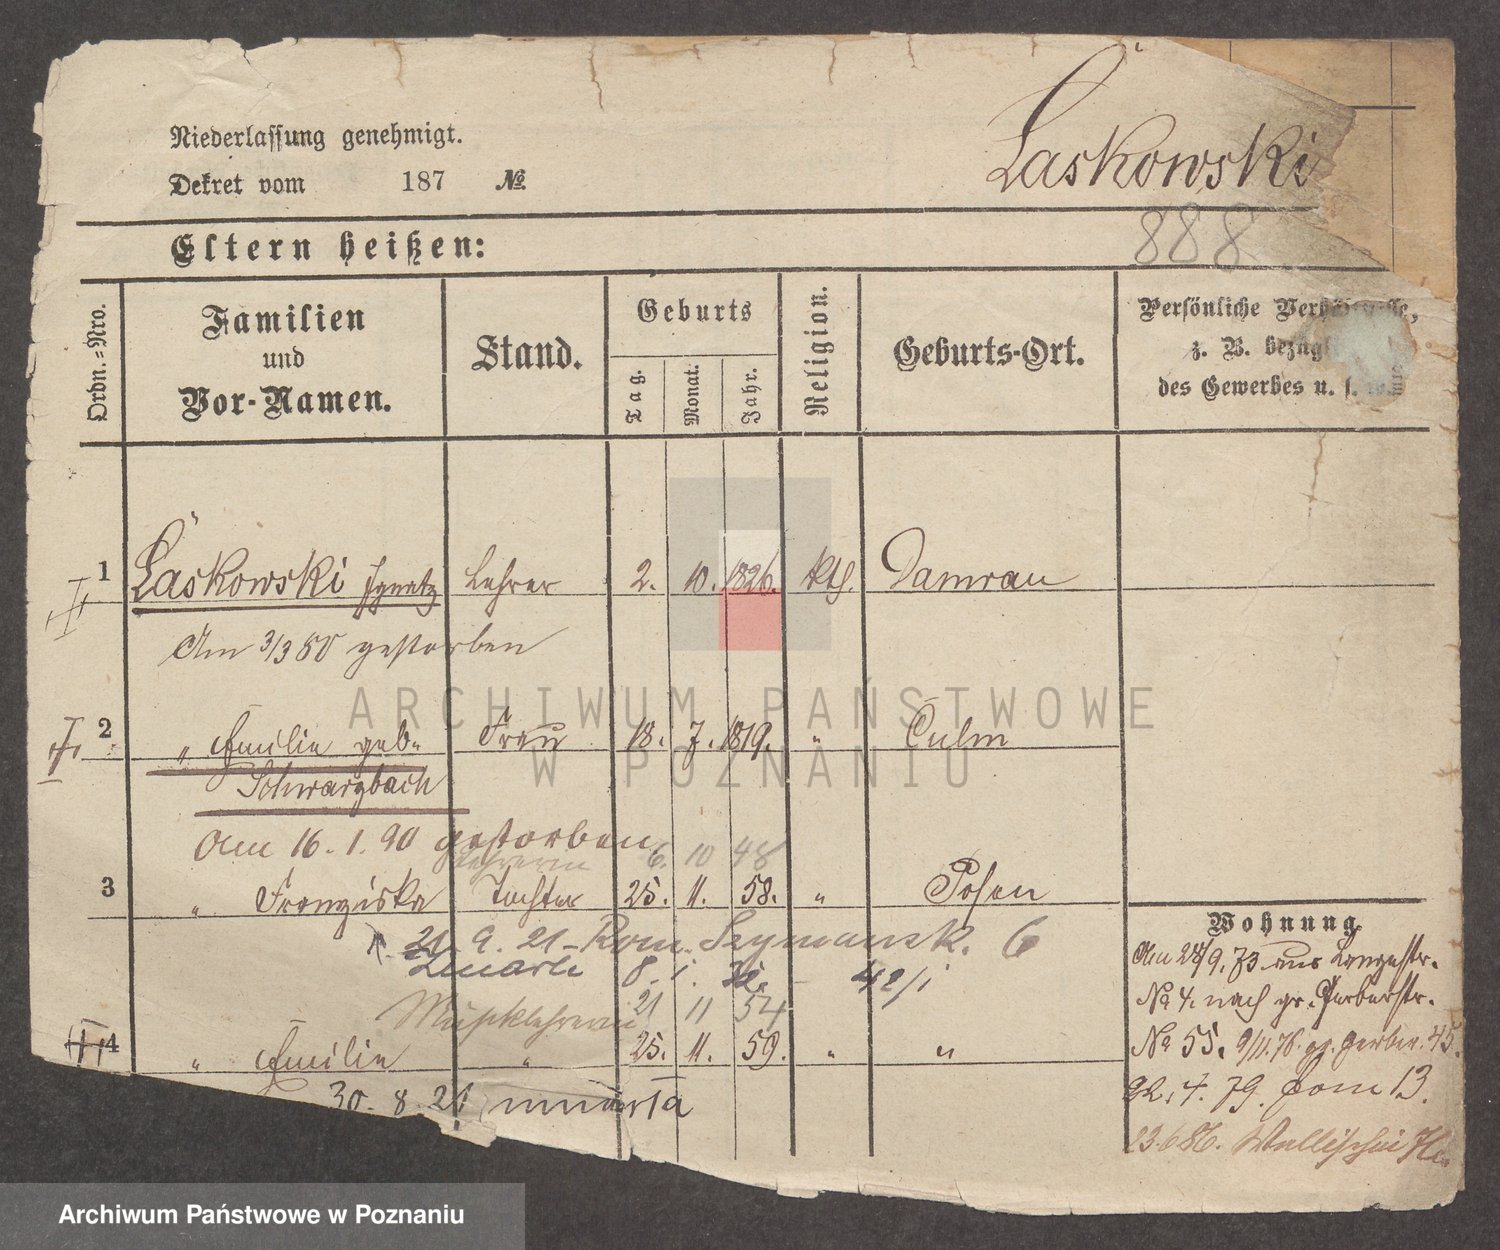 Niederlassung genehmigt.
Dekret vom 187 №
Laskowski
888
Eltern heißen:
Ordn.-Nro.
Familien
und
Vor-Namen.
Stand.
Geburts
Tag.
Monat.
Jahr.
Religion.
Geburts-Ort.
Persönliche
z. B.
des Gewerbes u. s.
1 Laskowski Ignatz Lehrer 2. 10. 1826. kth. Damrau
Am 3/3 80 gestorben
2 " Emilie geb. Frau 18. 7. 1819. " Culm
Schwarzbach
Am 16. 1. 90 gestorben
6. 10 48
3 " Franziska Tochter 25. 11. 58. " Posen
21. 9. 21 - Rom. Szymansk. 6
Zmarła 8. 1. 42/1
Musiklehrerin 21 11 54
4 " Emilie " 25. 11. 59. " "
30. 8. 21 umarła
Wohnung
Am 24/9. 73 aus Langestr.
No 4. nach gr. Gerberstr.
No 55. 9/11. 76. gr. Gerber. 45.
22. 4. 79. Dom 13.
23.6 86. Wallischei
ARCHIWUM PAŃSTWOWE
W POZNANIU
Archiwum Państwowe w Poznaniu